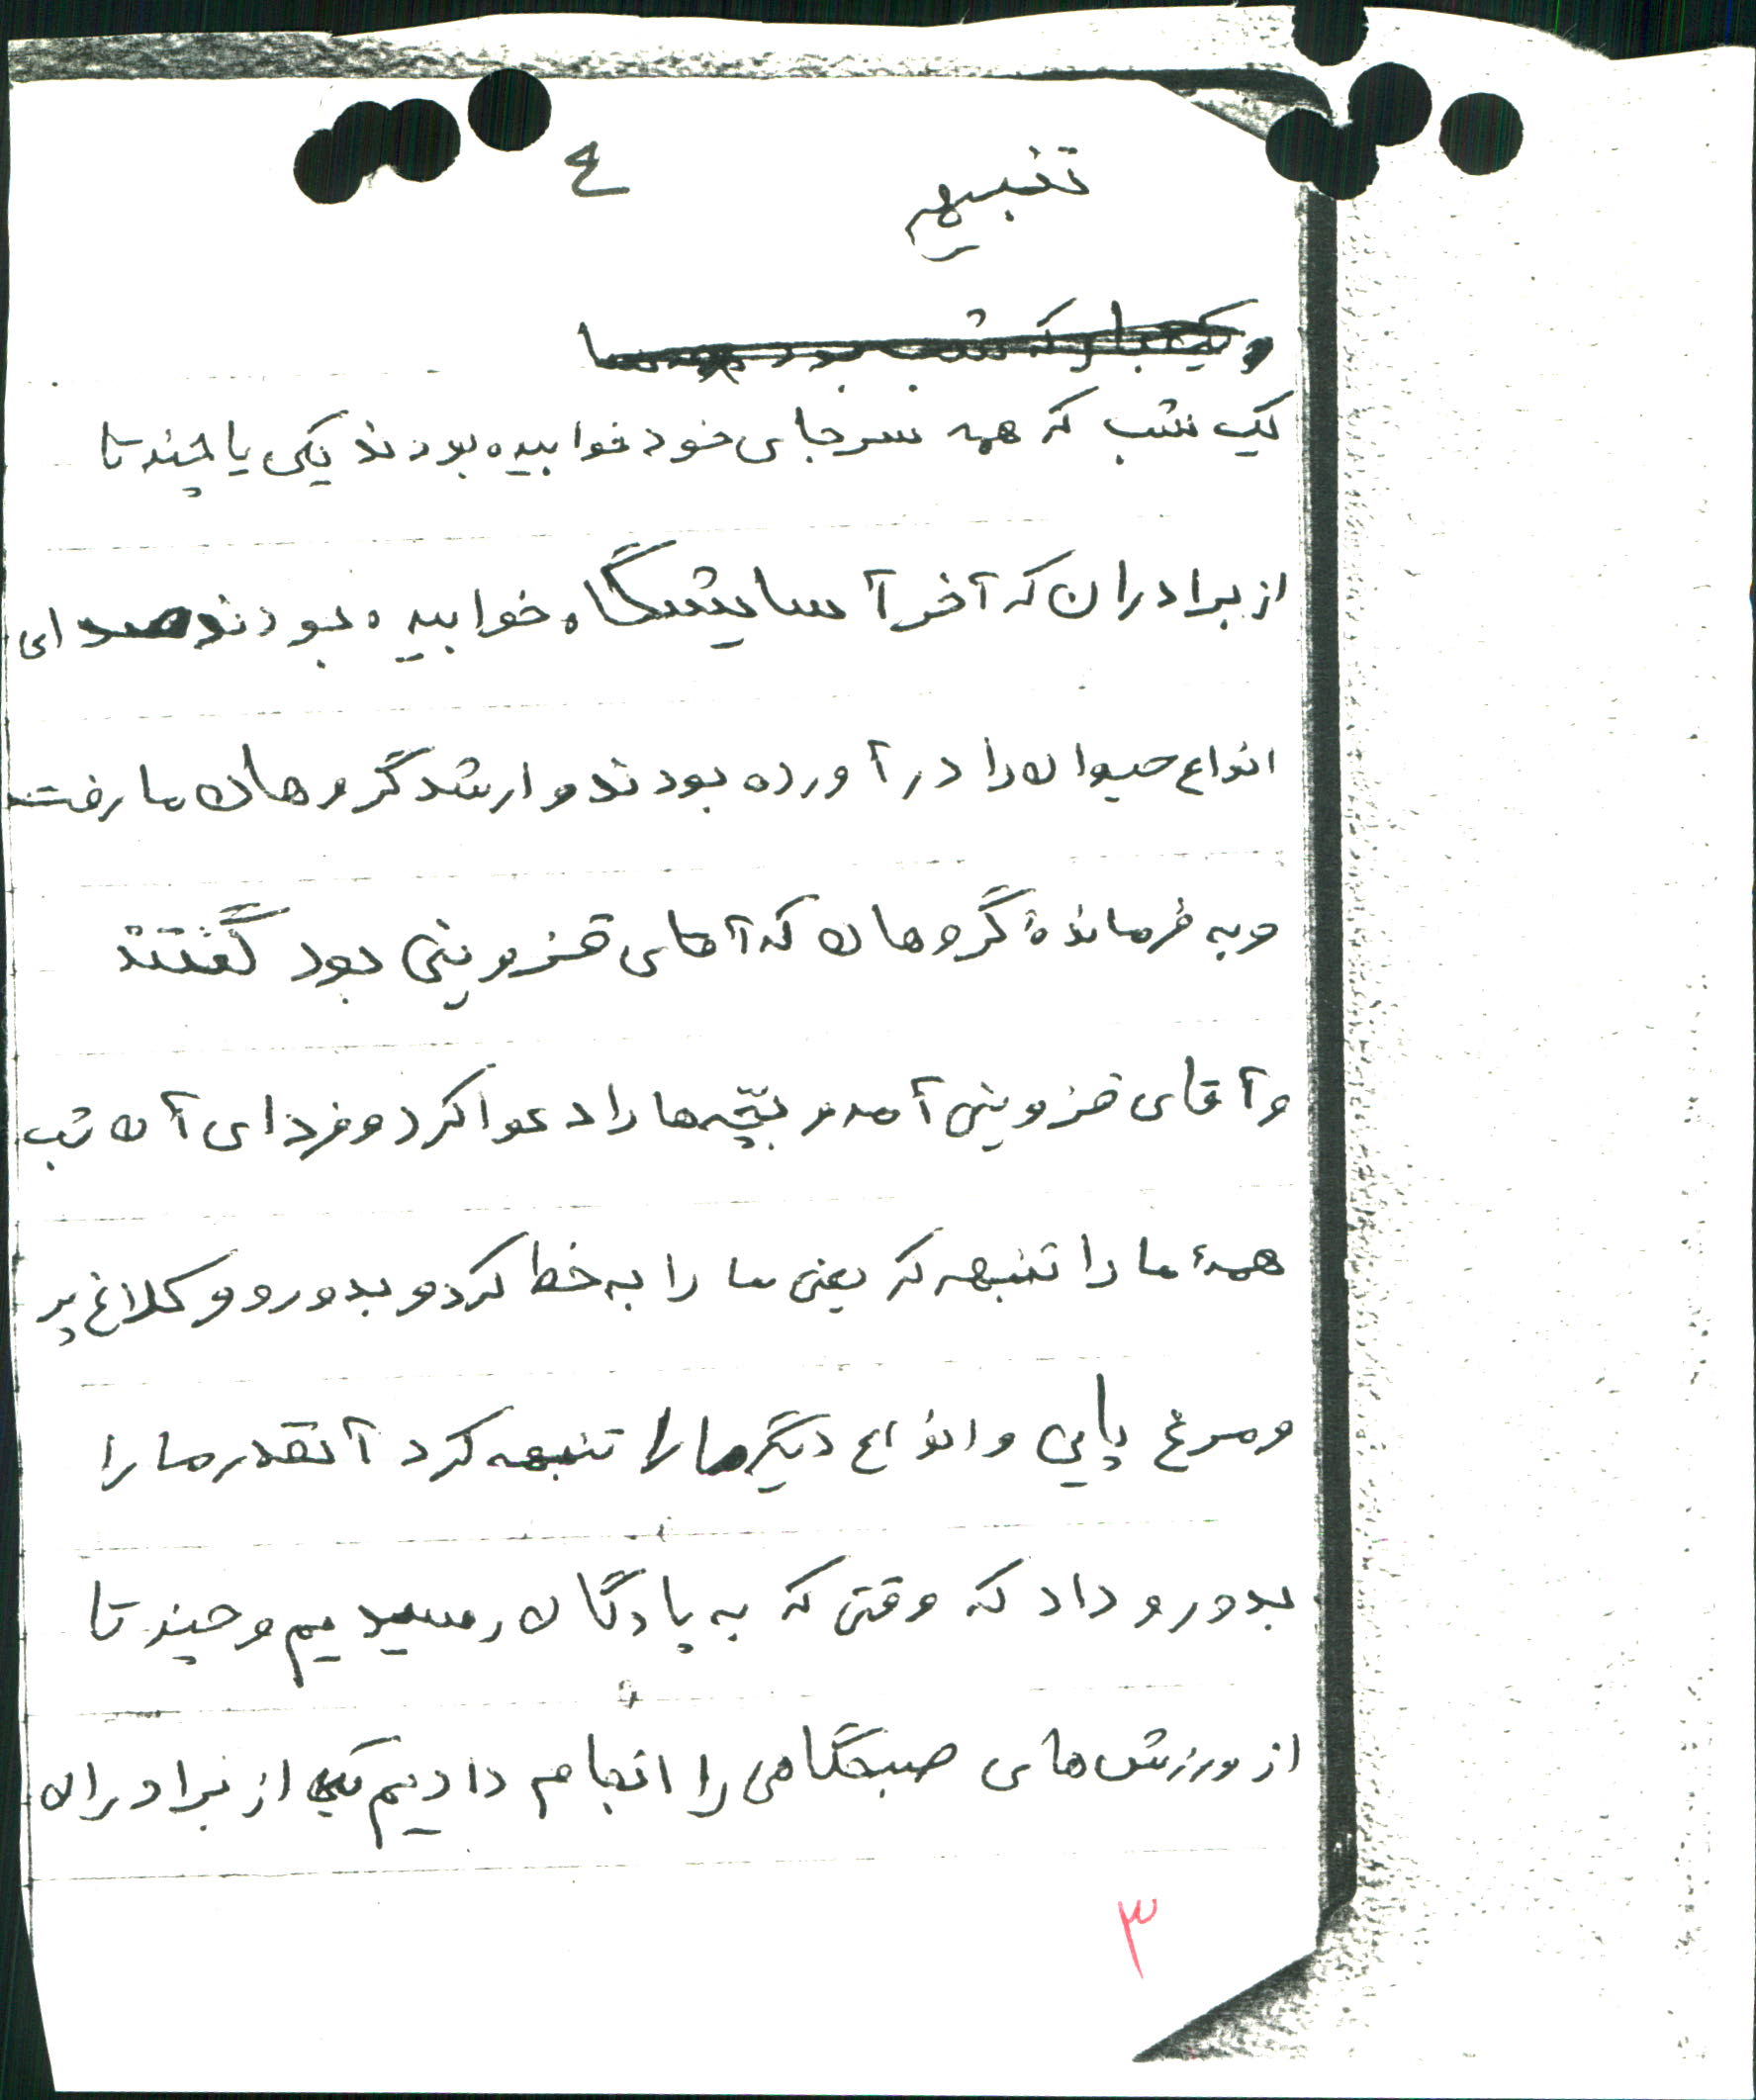 تنبیهه ٤
یک شب که همه سر جای خود خوابیده بودند یکی یا چند تا
از برادران که آخر آسایشگاه خوابیده بودند صدای
انواع حیوان را در آورده بودند و ارشد گروهان ما رفتند
و به فرماندهٔ گروهان که آقای قزوینی بود گفتند
و آقای قزوینی آمد و بچّه‌ها را دعوا کرد و فردای آن شب
همهٔ ما را تنبهه که یعنی ما را به خط کرد و بدو رو و کلاغ پر
و مرغ پایی و انواع دیگر ما را تنبهه کرد آنقدر ما را
بدو رو داد که وقتی که به پادگان رسیدیم و چند تا
از ورزش‌های صبحگاهی را انجام دادیم یکی از برادران
۳